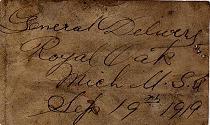 General Delivery
Royal Oak
Mich U.S.A
Sep 19th 1919